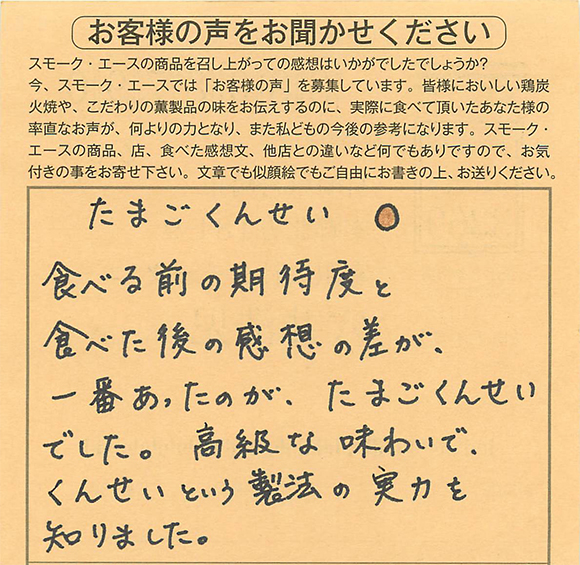 お客様の声をお聞かせください
スモーク・エースの商品を召し上がっての感想はいかがでしたでしょうか?
今、スモーク・エースでは「お客様の声」を募集しています。皆様においしい鶏炭
火焼や、こだわりの薫製品の味をお伝えするのに、実際に食べて頂いたあなた様の
率直なお声が、何よりの力となり、また私どもの今後の参考になります。スモーク・
エースの商品、店、食べた感想文、他店との違いなど何でもありですので、お気
付きの事をお寄せ下さい。文章でも似顔絵でもご自由にお書きの上、お送りください。
たまごくんせい
食べる前の期待度と
食べた後の感想の差が、
一番あったのが、たまごくんせい
でした。高級な味わいで、
くんせいという製法の実力を
知りました。